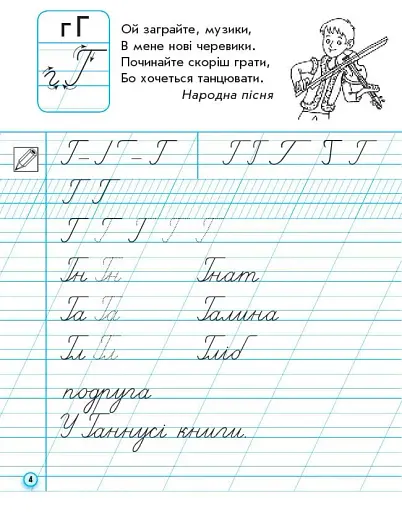 гГ
г Г
Ой заграйте, музики,
В мене нові черевики.
Починайте скоріш грати,
Бо хочеться танцювати.
Народна пісня
Г Г Г Г Г Г Г
Г Г
Г Г Г Г Г
Гн Гн Гнат
Га Га Галина
Гл Гл Гліб
подруга
У Ганнусі книги.
4